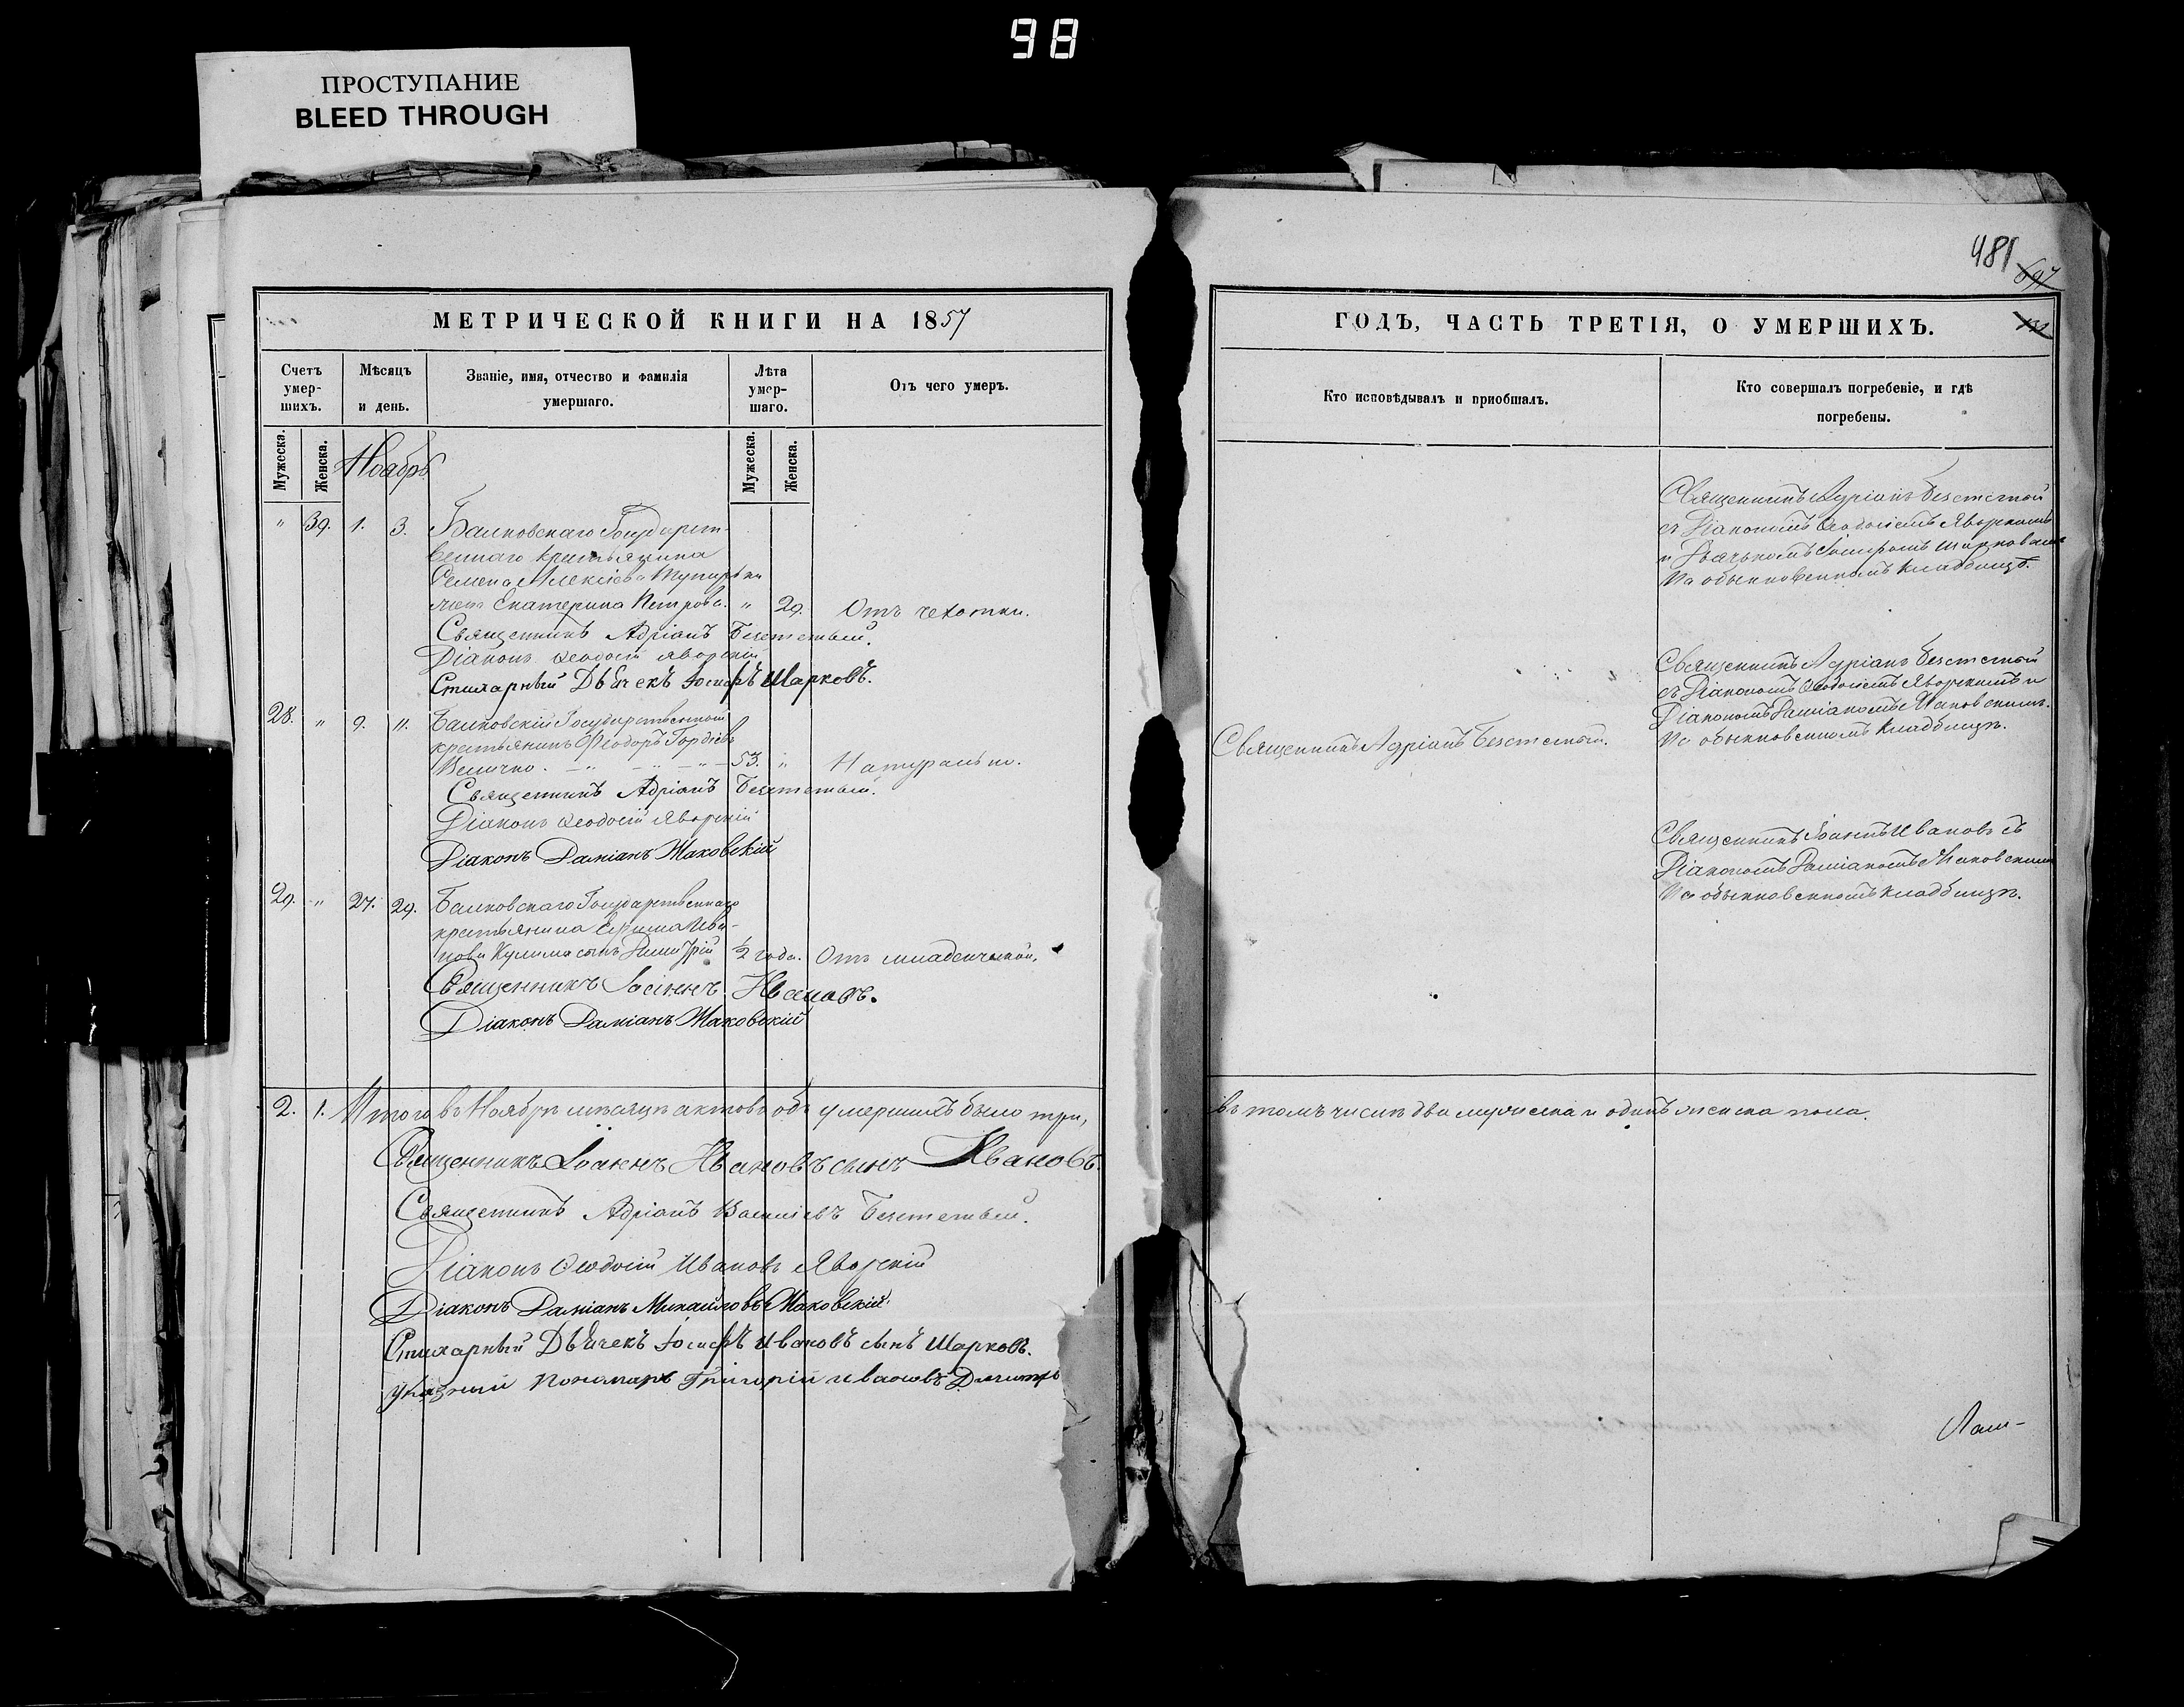 98
ПРОСТУПАНИЕ
BLEED THROUGH
МЕТРИЧЕСКОЙ КНИГИ НА 1857
Счетъ умер-шихъ.
Мѣсяцъ и день.
Званіе, имя, отчество и фамилія умершаго.
Лѣта умер-шаго.
Отъ чего умеръ.
Мужеска.
Женска.
Мужеска.
Женска.
Ноябрь
" 39. 1. 3. Балковскаго Государст-
веннаго крестьянина
Семена Алексіева
жена Екатерина Петрова. " 29. Отъ чехотки.
Священникъ Адріанъ Безстетный.
Діаконъ Ѳеодосій Яворскій
Стихарный Дѣячекъ Іосифъ Шарковъ.
28. " 9. 11. Балковскій Государственной
крестьянинъ Ѳеодоръ Гордіевъ
Величко. 53. " Натурально.
Священникъ Адріанъ Безстетный.
Діаконъ Ѳеодосій Яворскій
Діаконъ Даміанъ Маковскій
29. " 27. 29. Балковскаго Государственнаго
крестьянина Ефима Ива-
нова сынъ Димитрій ½ года. Отъ младенческой,
Священникъ Іоаннъ Ивановъ.
Діаконъ Даміанъ Маковскій
2. 1. Итого въ Ноябрѣ мѣсяцѣ актовъ объ умершихъ было три,
Священникъ Іоаннъ Ивановъ сынъ Ивановъ.
Священникъ Адріанъ Васильевъ Безстетный.
Діаконъ Ѳеодосій Ивановъ Яворскій
Діаконъ Даміанъ Михайловъ Маковскій.
Стихарный Дѣячекъ Іосифъ Ивановъ сынъ Шарковъ.
Указный Пономарь Григорій Ивановъ
481
697
ГОДЪ, ЧАСТЬ ТРЕТІЯ, О УМЕРШИХЪ.
Кто исповѣдывалъ и пріобщалъ.
Кто совершалъ погребеніе, и гдѣ погребены.
Священникъ Адріанъ Безстетной
съ Діакономъ Ѳеодосіемъ Яворскимъ
и Дьячькомъ Іосифомъ Шарковымъ
На обыкновенномъ кладбищѣ.
Священникъ Адріанъ Безстетной.
Священникъ Адріанъ Безстетной
съ Діакономъ Ѳеодосіемъ Яворскимъ и
Діакономъ Даміаномъ Маковскимъ.
На обыкновенномъ кладбищѣ.
Священникъ Іоаннъ Ивановъ съ
Діакономъ Даміаномъ Маковскимъ
На обыкновенномъ кладбищѣ.
въ томъ числѣ два мужеска и одинъ женска пола.